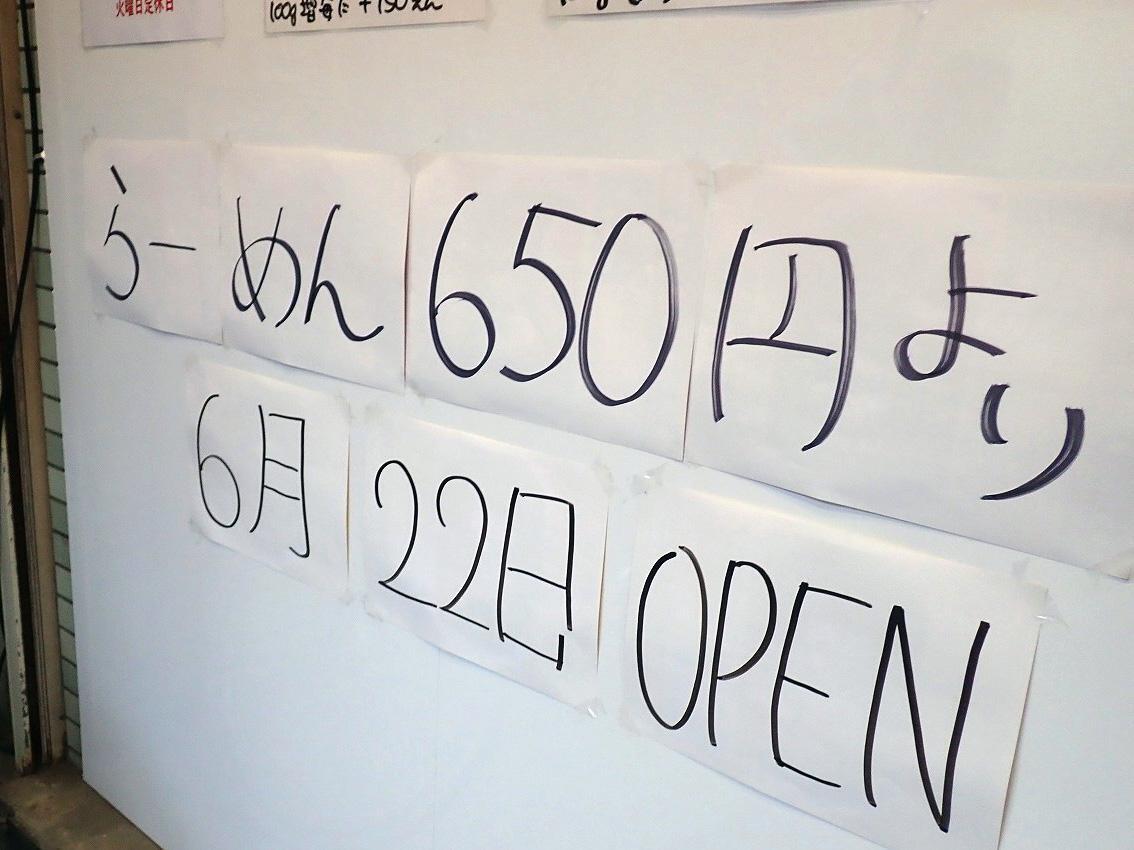 火曜日定休日
100g増毎に+150えん
らーめん650円より
6月22日OPEN